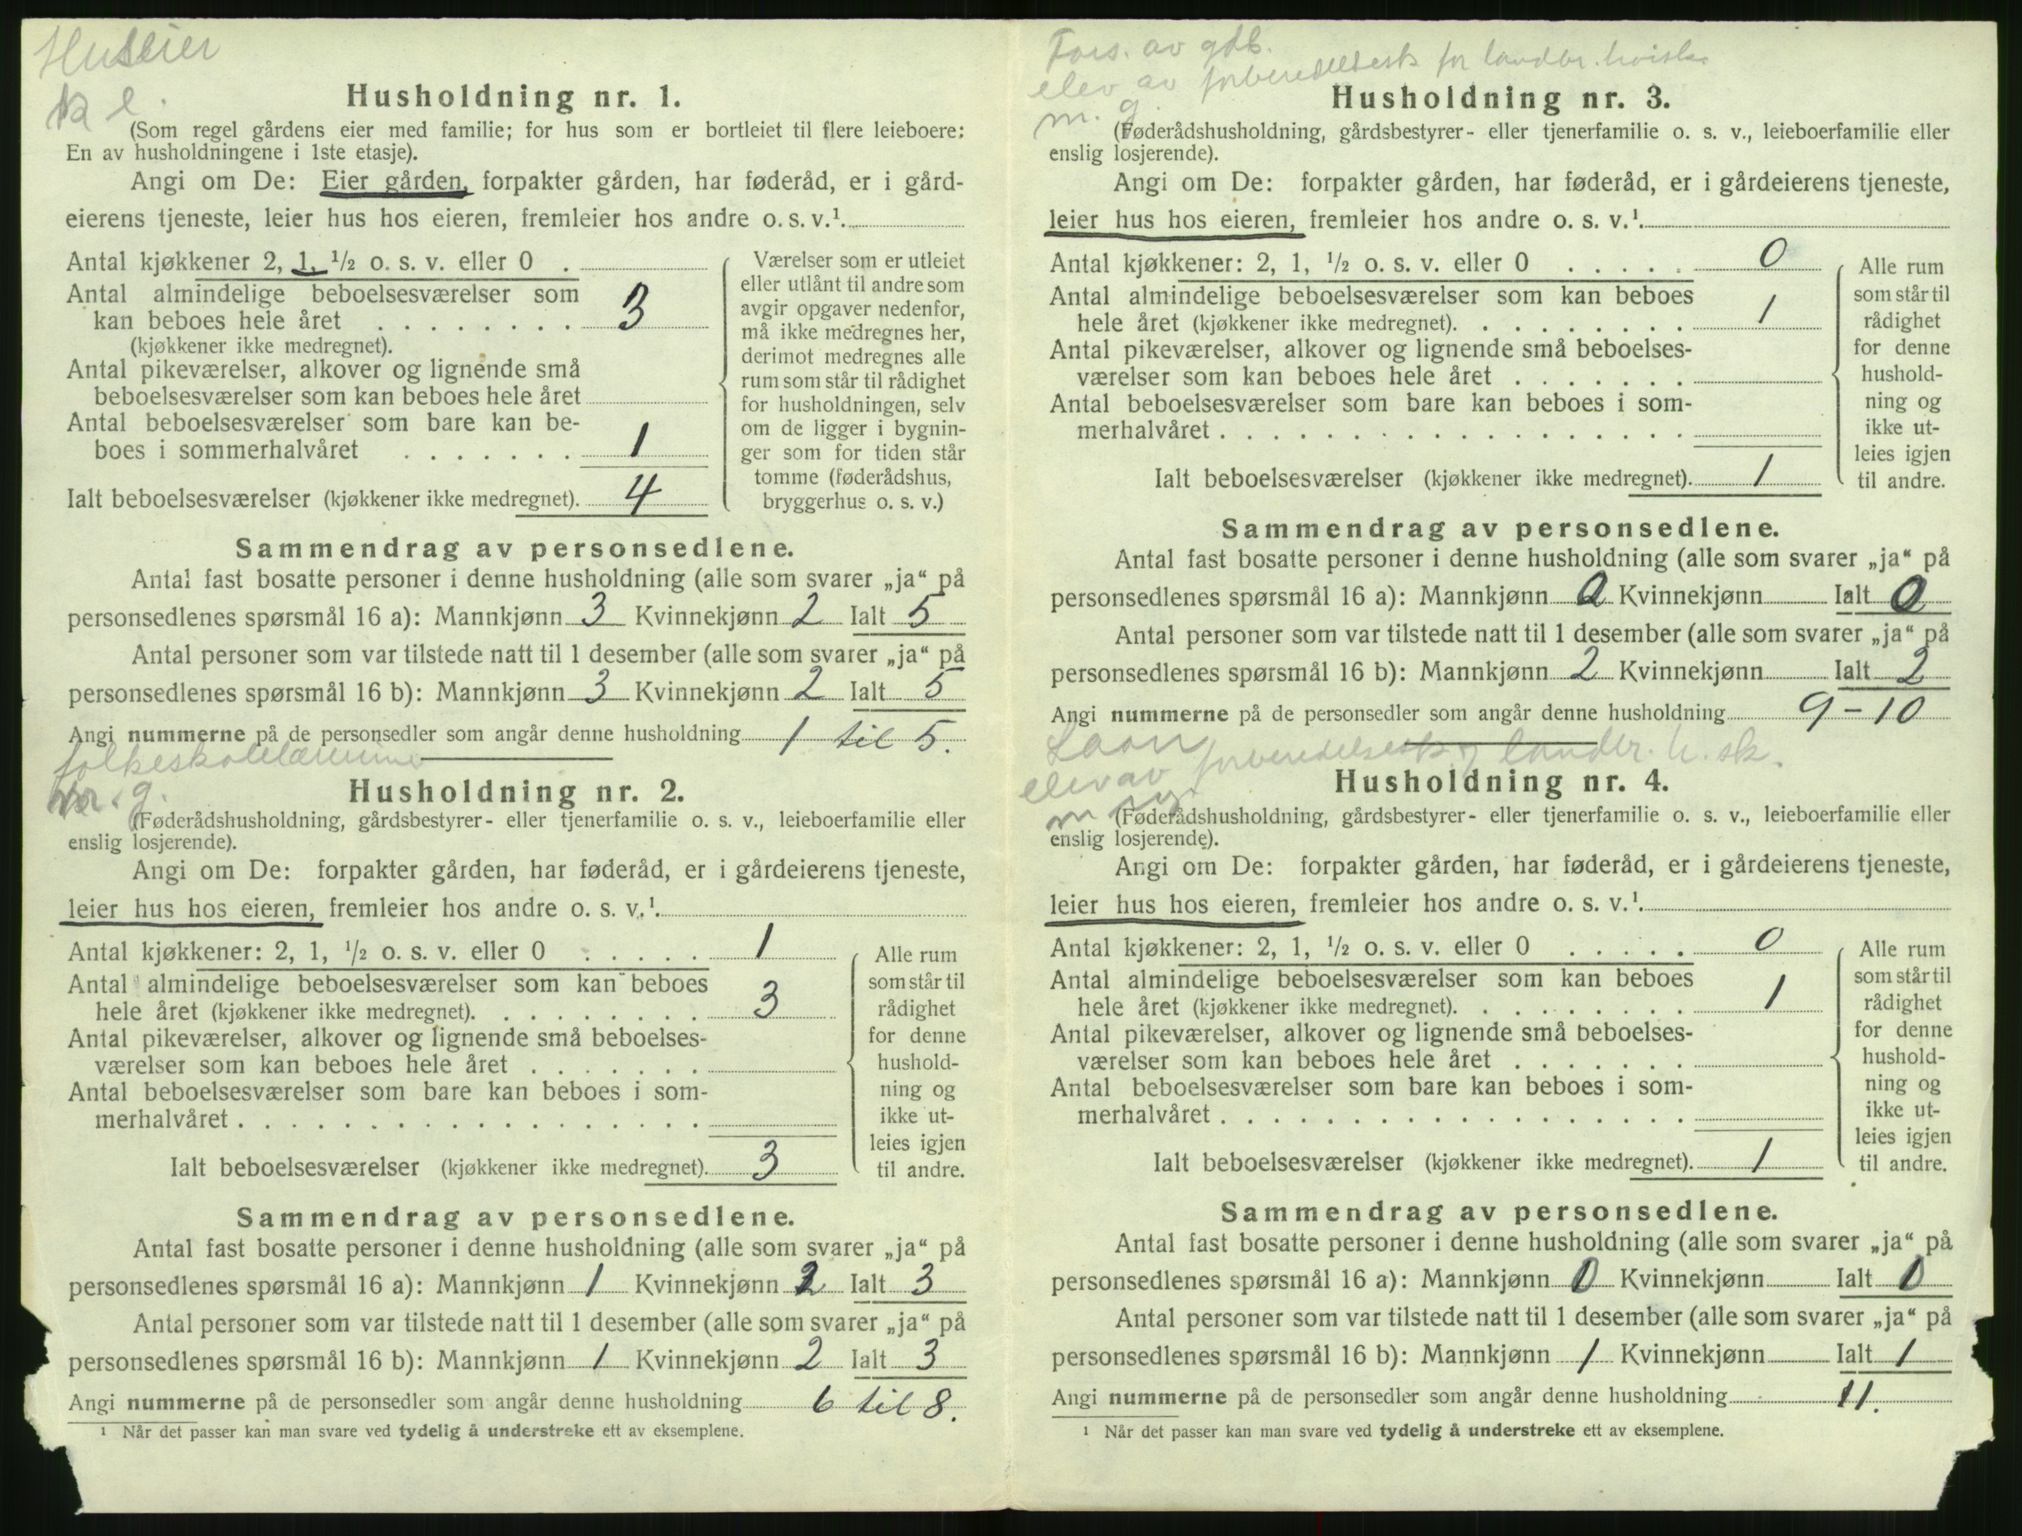 Huseier
k l.
Husholdning nr. 1.
(Som regel gårdens eier med familie; for hus som er bortleiet til flere leieboere:
En av husholdningene i 1ste etasje).
Angi om De: Eier gården, forpakter gården, har føderåd, er i gård-
eierens tjeneste, leier hus hos eieren, fremleier hos andre o. s. v.¹
Antal kjøkkener 2, 1, ½ o. s. v. eller 0 .
Antal almindelige beboelsesværelser som
kan beboes hele året . . . . . . . . 3
(kjøkkener ikke medregnet).
Antal pikeværelser, alkover og lignende små
beboelsesværelser som kan beboes hele året
Antal beboelsesværelser som bare kan be-
boes i sommerhalvåret . . . . . . . 1
Ialt beboelsesværelser (kjøkkener ikke medregnet). 4
Værelser som er utleiet
eller utlånt til andre som
avgir opgaver nedenfor,
må ikke medregnes her,
derimot medregnes alle
rum som står til rådighet
for husholdningen, selv
om de ligger i bygnin-
ger som for tiden står
tomme (føderådshus,
bryggerhus o. s. v.)
Sammendrag av personsedlene.
Antal fast bosatte personer i denne husholdning (alle som svarer „ja“ på
personsedlenes spørsmål 16 a): Mannkjønn 3 Kvinnekjønn 2 Ialt 5
Antal personer som var tilstede natt til 1 desember (alle som svarer „ja“ på
personsedlenes spørsmål 16 b): Mannkjønn 3 Kvinnekjønn 2 Ialt 5
Angi nummerne på de personsedler som angår denne husholdning 1 til 5.
g.
Husholdning nr. 2.
(Føderådshusholdning, gårdsbestyrer- eller tjenerfamilie o. s. v., leieboerfamilie eller
enslig losjerende).
Angi om De: forpakter gården, har føderåd, er i gårdeierens tjeneste,
leier hus hos eieren, fremleier hos andre o. s. v.¹
Antal kjøkkener: 2, 1, ½ o. s. v. eller 0 . . . . . 1
Antal almindelige beboelsesværelser som kan beboes
hele året (kjøkkener ikke medregnet). . . . . . . . . 3
Antal pikeværelser, alkover og lignende små beboelses-
værelser som kan beboes hele året . . . . . . .
Antal beboelsesværelser som bare kan beboes i som-
merhalvåret . . . . . . . . . . . . . . . . . .
Ialt beboelsesværelser (kjøkkener ikke medregnet). 3
Alle rum
som står til
rådighet
for denne
hushold-
ning og
ikke ut-
leies igjen
til andre.
Sammendrag av personsedlene.
Antal fast bosatte personer i denne husholdning (alle som svarer „ja“ på
personsedlenes spørsmål 16 a): Mannkjønn 1 Kvinnekjønn 2 Ialt 3
Antal personer som var tilstede natt til 1 desember (alle som svarer „ja“ på
personsedlenes spørsmål 16 b): Mannkjønn 1 Kvinnekjønn 2 Ialt 3
Angi nummerne på de personsedler som angår denne husholdning 6 til 8.
¹ Når det passer kan man svare ved tydelig å understreke ett av eksemplene.
Fors. av gdb.
elev av forberedelsessk for landbr. høisk.
m. g.
Husholdning nr. 3.
(Føderådshusholdning, gårdsbestyrer- eller tjenerfamilie o. s. v., leieboerfamilie eller
enslig losjerende).
Angi om De: forpakter gården, har føderåd, er i gårdeierens tjeneste,
leier hus hos eieren, fremleier hos andre o. s. v.¹
Antal kjøkkener: 2, 1, ½ o. s. v. eller 0 . . . . . 0
Antal almindelige beboelsesværelser som kan beboes
hele året (kjøkkener ikke medregnet). . . . . . . . . 1
Antal pikeværelser, alkover og lignende små beboelses-
værelser som kan beboes hele året . . . . . . .
Antal beboelsesværelser som bare kan beboes i som-
merhalvåret . . . . . . . . . . . . . . . . . .
Ialt beboelsesværelser (kjøkkener ikke medregnet). 1
Alle rum
som står til
rådighet
for denne
hushold-
ning og
ikke ut-
leies igjen
til andre.
Sammendrag av personsedlene.
Antal fast bosatte personer i denne husholdning (alle som svarer „ja“ på
personsedlenes spørsmål 16 a): Mannkjønn 0 Kvinnekjønn Ialt 0
Antal personer som var tilstede natt til 1 desember (alle som svarer „ja“ på
personsedlenes spørsmål 16 b): Mannkjønn 2 Kvinnekjønn Ialt 2
Angi nummerne på de personsedler som angår denne husholdning 9 – 10
Laan
elev av forberedelsessk landbr. h. sk.
m
Husholdning nr. 4.
(Føderådshusholdning, gårdsbestyrer- eller tjenerfamilie o. s. v., leieboerfamilie eller
enslig losjerende).
Angi om De: forpakter gården, har føderåd, er i gårdeierens tjeneste,
leier hus hos eieren, fremleier hos andre o. s. v.¹
Antal kjøkkener: 2, 1, ½ o. s. v. eller 0 . . . . . 0
Antal almindelige beboelsesværelser som kan beboes
hele året (kjøkkener ikke medregnet). . . . . . . . . 1
Antal pikeværelser, alkover og lignende små beboelses-
værelser som kan beboes hele året . . . . . . .
Antal beboelsesværelser som bare kan beboes i som-
merhalvåret . . . . . . . . . . . . . . . . . .
Ialt beboelsesværelser (kjøkkener ikke medregnet). 1
Alle rum
som står til
rådighet
for denne
hushold-
ning og
ikke ut-
leies igjen
til andre.
Sammendrag av personsedlene.
Antal fast bosatte personer i denne husholdning (alle som svarer „ja“ på
personsedlenes spørsmål 16 a): Mannkjønn 0 Kvinnekjønn Ialt 0
Antal personer som var tilstede natt til 1 desember (alle som svarer „ja“ på
personsedlenes spørsmål 16 b): Mannkjønn 1 Kvinnekjønn Ialt 1
Angi nummerne på de personsedler som angår denne husholdning 11.
¹ Når det passer kan man svare ved tydelig å understreke ett av eksemplene.